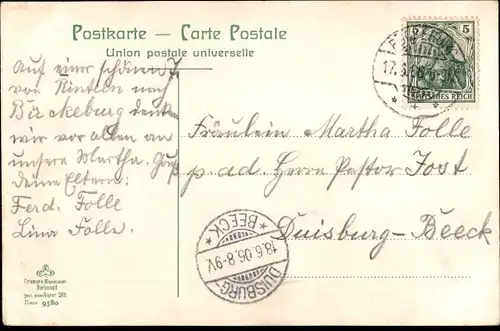 Postkarte — Carte Postale
Union postale universelle
Auf einer schönen T.
von Rinteln nach
Bückeburg denken
wir vor allen an
unsere Martha. Gruß
deine Eltern:
Ferd. Folle
Lina Folle.
Fräulein Martha Folle
p. ad. Herrn Pastor Jost
Duisburg-Beeck
5
DEUTSCHES REICH
17.
* BEECK *
18.6.06.8-9V.
DUISBURG
9580